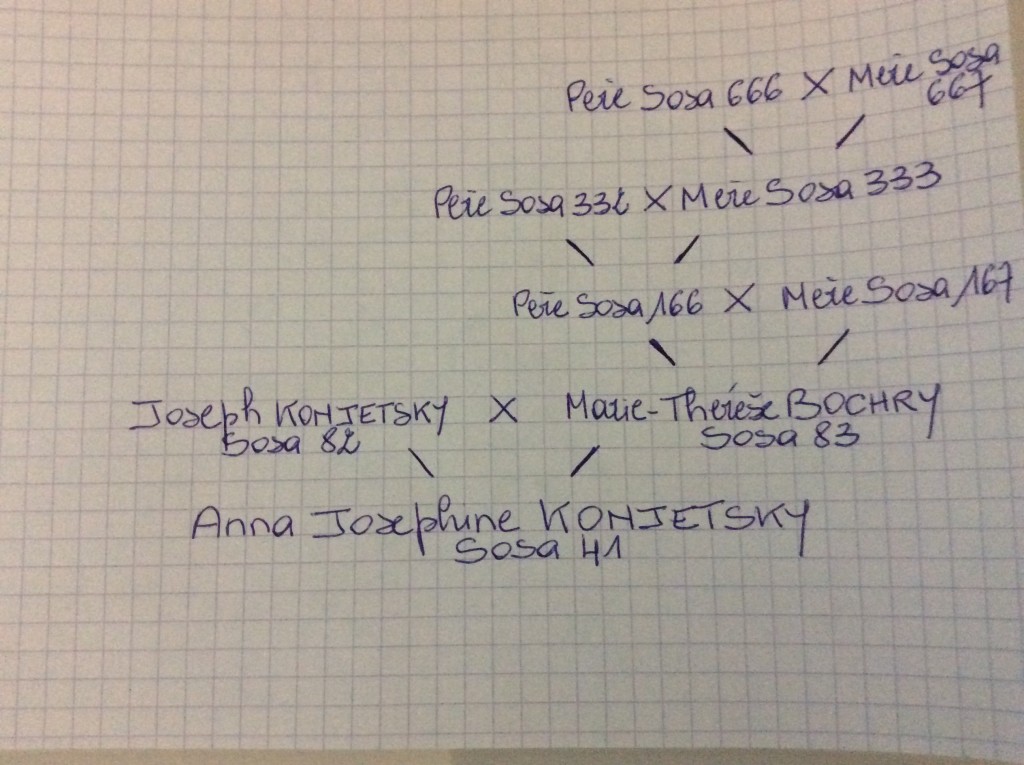 Père Sosa 666 X Mère Sosa 667
Père Sosa 332 X Mère Sosa 333
Père Sosa 166 X Mère Sosa 167
Joseph KONJETSKY X Marie-Thérèse BOCHRY
Sosa 82 Sosa 83
Anna Josephine KONJETSKY
Sosa 41